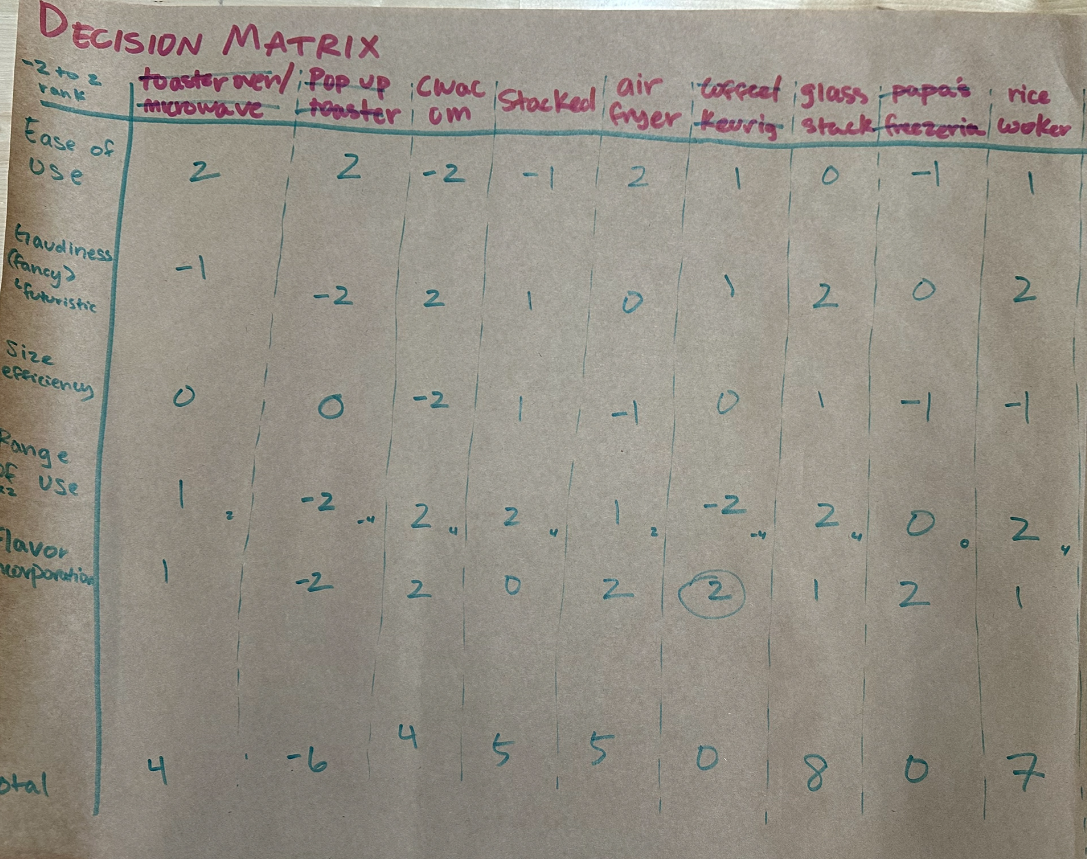 DECISION MATRIX
-2 to 2 rank toaster oven/ microwave Pop up toaster CWAC om Stacked air fryer coffee/ keurig glass stack papa's freezeria rice woker
Ease of Use 2 2 -2 -1 2 1 0 -1 1
Gaudiness (fancy) & futuristic -1 -2 2 1 0 1 2 0 2
Size efficiency 0 0 -2 1 -1 0 1 -1 -1
Range of Use x2 1 2 -2 -4 2 4 2 4 1 2 -2 -4 2 4 0 0 2 4
Flavor ncorporation 1 -2 2 0 2 2 1 2 1
otal 4 -6 4 5 5 0 8 0 7